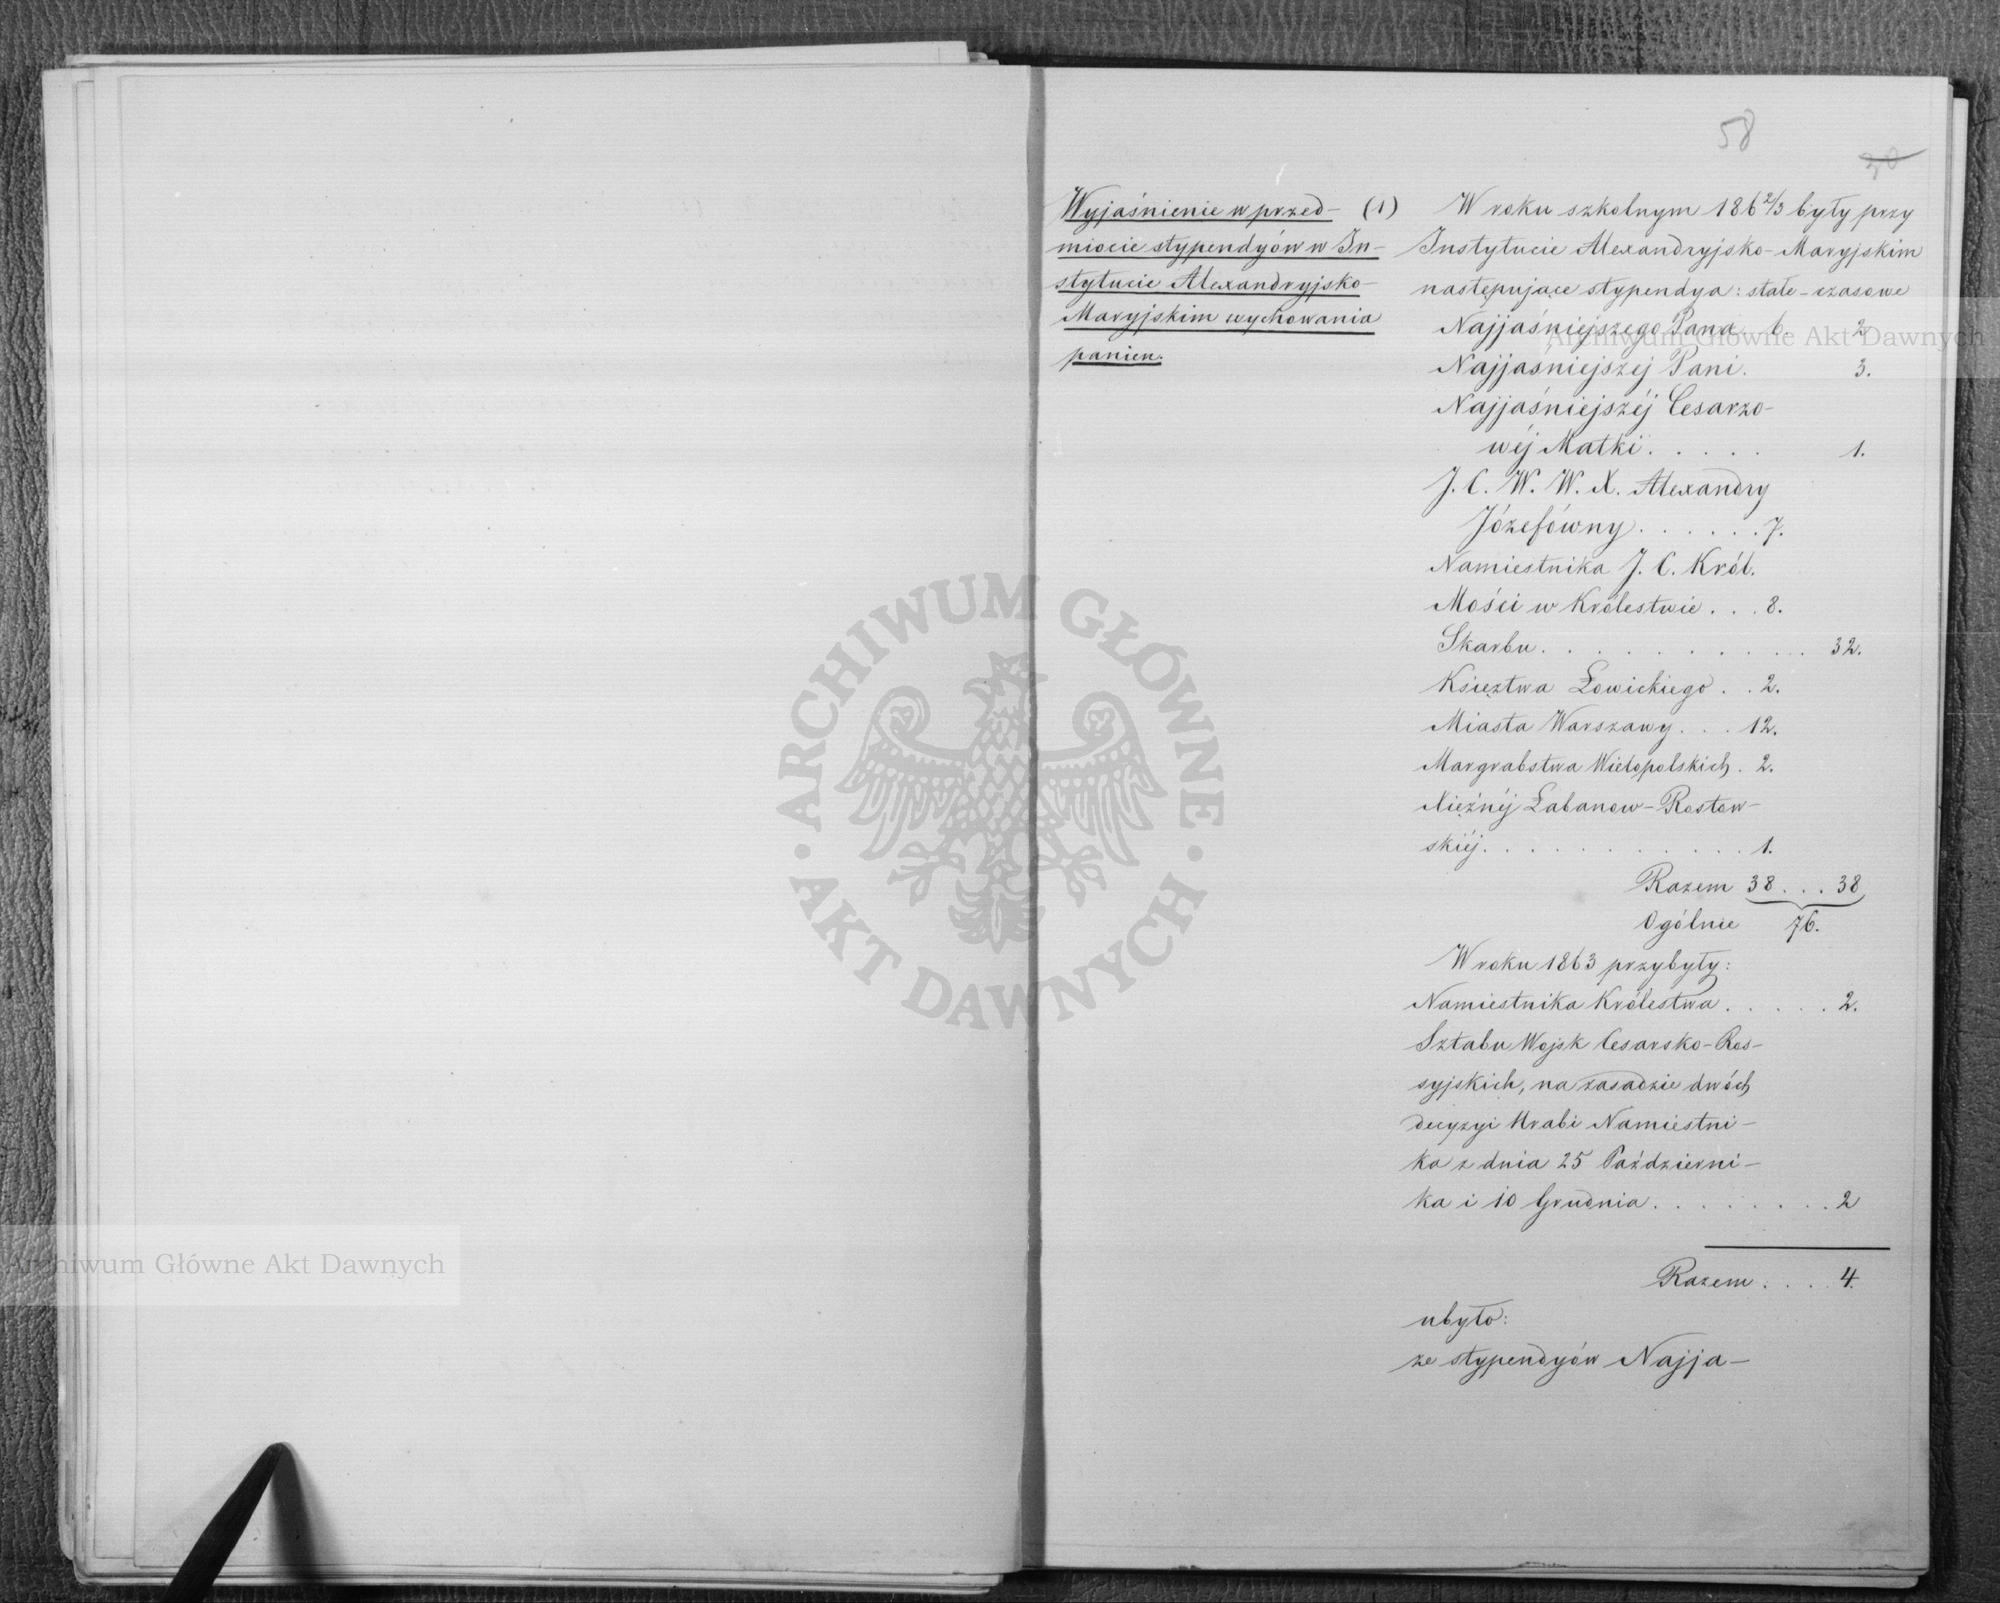 58
30
Wyjaśnienie w przed-
miocie stypendyów w In-
stytucie Alexandryjsko-
Maryjskim wychowania
panien.
(1) W roku szkolnym 186 2/3 były przy
Instytucie Alexandryjsko-Maryjskim
następujące stypendya: stałe - czasowe
Najjaśniejszego Pana. 6. 2
Najjaśniejszej Pani. 3.
Najjaśniejszéj Cesarzo-
wéj Matki. . . . . 1.
J. C. W. W. X. Alexandry
Józefówny . . . . . . 7.
Namiestnika J. C. Król.
Mości w Królestwie . . . 8.
Skarbu . . . . . . . . . . . 32.
Księztwa Łowickiego . . 2.
Miasta Warszawy . . . 12.
Margrabstwa Wielopolskich . 2.
Xiężnéj Łabanow-Rostow-
skiéj . . . . . . . . . . . 1.
Razem 38 . . . 38
Ogólnie 76.
W roku 1863 przybyły:
Namiestnika Królestwa . . . . . 2.
Sztabu Wojsk Cesarsko-Ros-
syjskich, na zasadzie dwóch
decyzyi Hrabi Namiestni-
ka z dnia 25 Październi-
ka i 10 Grudnia . . . . . . . . 2
Razem . . . . 4.
ubyło:
ze stypendyów Najja-
Archiwum Główne Akt Dawnych
ARCHIWUM GŁÓWNE · AKT DAWNYCH ·
Archiwum Główne Akt Dawnych